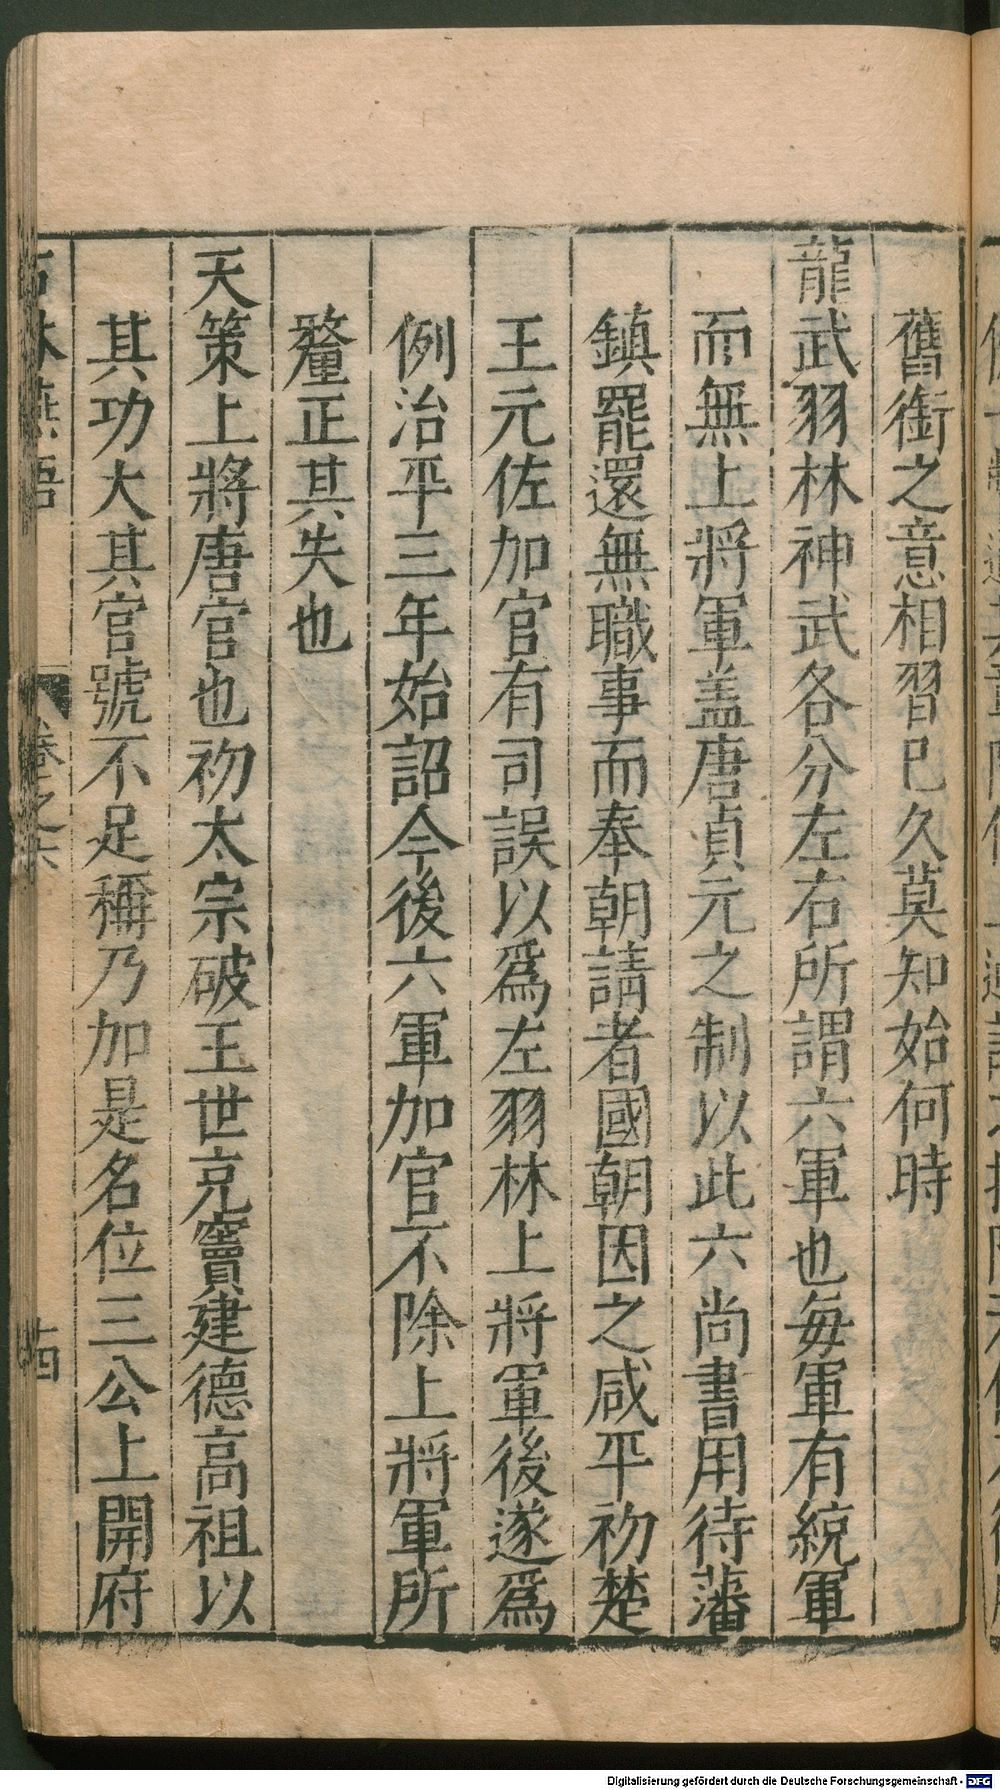 舊銜之意相習巳久莫知始何時
龍武羽林神武各分左右所謂六軍也每軍有統軍
而無上將軍盖唐貞元之制以此六尚書用待藩
鎮罷還無職事而奉朝請者國朝因之咸平初楚
王元佐加官有司誤以爲左羽林上將軍後遂爲
例治平三年始詔今後六軍加官不除上將軍所
釐正其失也
天策上將唐官也初太宗破王世充竇建德高祖以
其功大其官號不足稱乃加是名位三公上開府
石林燕語
卷之六
十四
Digitalisierung gefördert durch die Deutsche Forschungsgemeinschaft - DFG